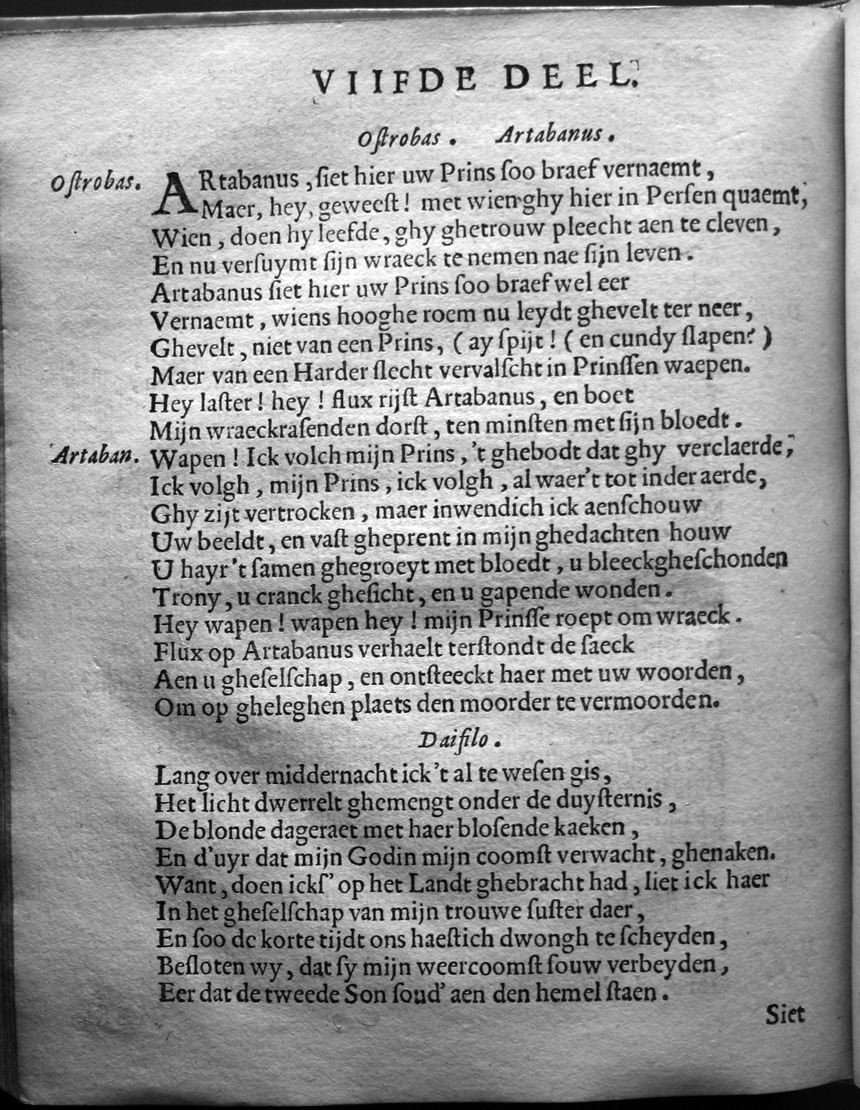 VIIFDE DEEL.
Oſtrobas. Artabanus.
Oſtrobas. ARtabanus, ſiet hier uw Prins ſoo braef vernaemt,
Maer, hey, geweeſt! met wien ghy hier in Perſen quaemt,
Wien, doen hy leefde, ghy ghetrouw pleecht aen te cleven,
En nu verſuymt ſijn wraeck te nemen nae ſijn leven.
Artabanus ſiet hier uw Prins ſoo braef wel eer
Vernaemt, wiens hooghe roem nu leydt ghevelt ter neer,
Ghevelt, niet van een Prins, (ay ſpijt! (en cundy ſlapen?)
Maer van een Harder ſlecht vervalſcht in Prinſſen waepen.
Hey laſter! hey! flux rijſt Artabanus, en boet
Mijn wraeckraſenden dorſt, ten minſten met ſijn bloedt.
Artaban. Wapen! Ick volch mijn Prins, 't ghebodt dat ghy verclaerde,
Ick volgh, mijn Prins, ick volgh, al waer't tot inder aerde,
Ghy zijt vertrocken, maer inwendich ick aenſchouw
Uw beeldt, en vaſt gheprent in mijn ghedachten houw
U hayr 't ſamen ghegroeyt met bloedt, u bleeckgheſchonden
Trony, u cranck gheſicht, en u gapende wonden.
Hey wapen! wapen hey! mijn Prinſſe roept om wraeck.
Flux op Artabanus verhaelt terſtondt de ſaeck
Aen u gheſelſchap, en ontſteeckt haer met uw woorden,
Om op gheleghen plaets den moorder te vermoorden.
Daifilo.
Lang over middernacht ick't al te weſen gis,
Het licht dwerrelt ghemengt onder de duyſternis,
De blonde dageraet met haer bloſende kaeken,
En d'uyr dat mijn Godin mijn coomſt verwacht, ghenaken.
Want, doen ickſ' op het Landt ghebracht had, liet ick haer
In het gheſelſchap van mijn trouwe ſuſter daer,
En ſoo de korte tijdt ons haeſtich dwongh te ſcheyden,
Beſloten wy, dat ſy mijn weercoomſt ſouw verbeyden,
Eer dat de tweede Son ſoud' aen den hemel ſtaen.
Siet